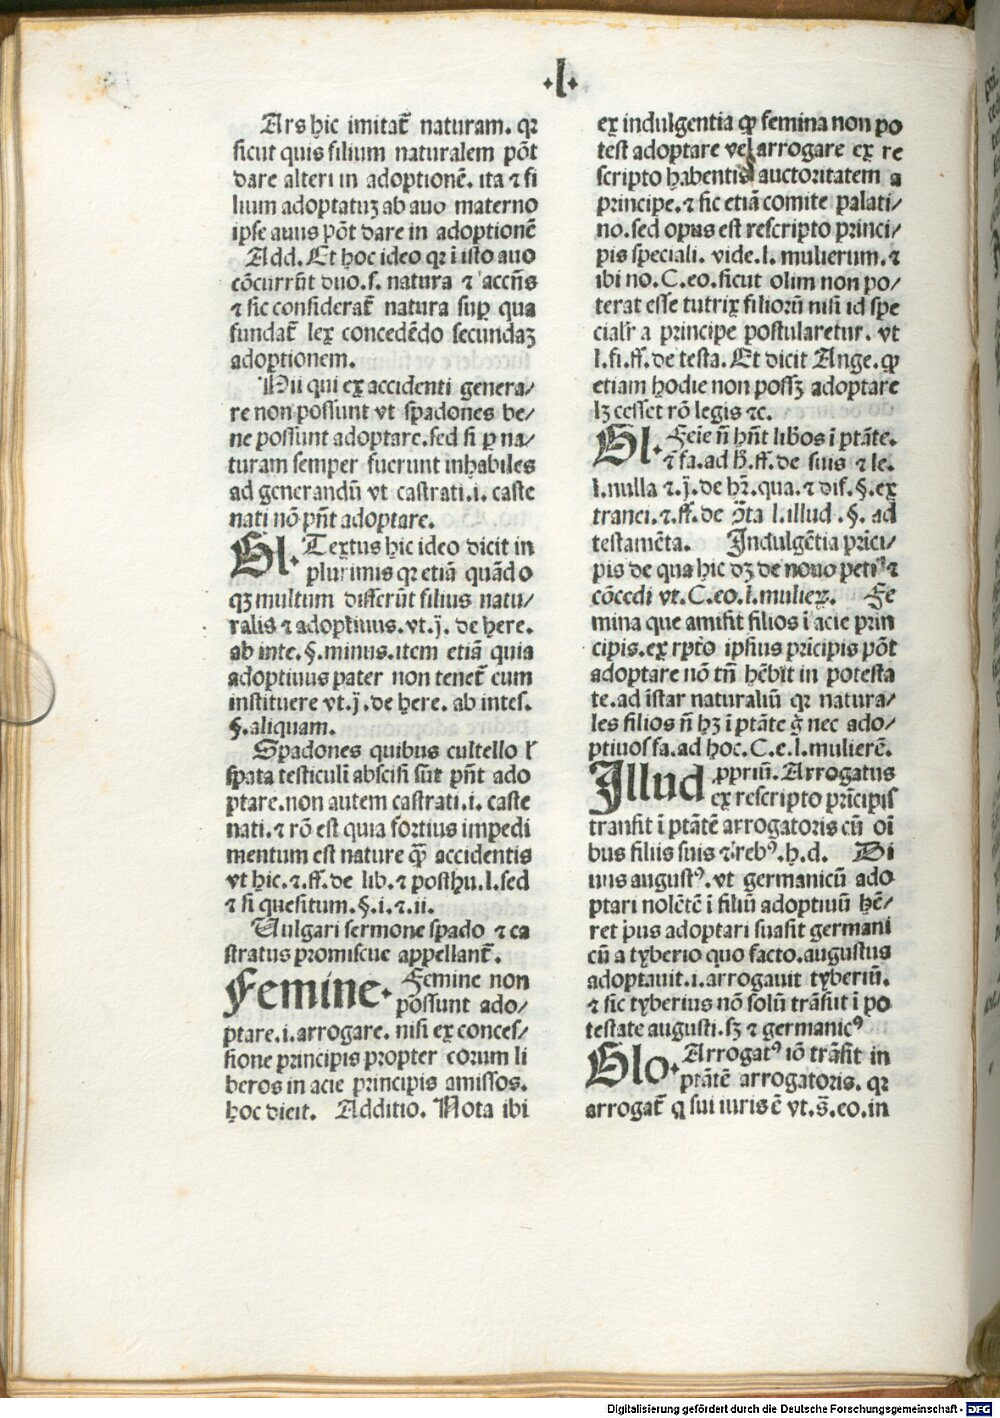 ·I·
Ars hic imitat̃ naturam. qꝛ
sicut quis filium naturalem põt
dare alteri in adoptionē. ita ⁊ fi
lium adoptatuꝫ ab auo materno
ipse auus põt dare in adoptionē
Add. Et hoc ideo qꝛ ī isto auo
cōcurrūt duo.s. natura ⁊ accñs
⁊ sic considerat̃ natura suꝑ qua
fundat̃ lex concedēdo secundaꝫ
adoptionem.
Hii qui ex accidenti genera/
re non possunt vt spadones be/
ne possunt adoptare.sed si ꝑ na/
turam semper fuerunt inhabiles
ad generandū vt castrati.i. caste
nati nō pñt adoptare.
Gl. Textus hic ideo dicit in
plurimis qꝛ etiā quādo
qꝫ multum differūt filius natu/
ralis ⁊ adoptiuus.vt.j. de here.
ab inte.§.minus.item etiā quia
adoptiuus pater non tenet̃ eum
instituere vt.j.de here. ab intes.
§.aliquam.
Spadones quibus cultello ł
spata testiculi abscisi sūt pñt ado
ptare.non autem castrati.i. caste
nati.⁊ rō est quia fortius impedi
mentum est nature q̃ꝫ accidentis
vt hic.⁊.ff.de lib.⁊ posthu.l.sed
⁊ si quesitum.§.i.⁊.ii.
Vulgari sermone spado ⁊ ca
stratus promiscue appellant̃.
Femine. Femine non
possunt ado/
ptare.i.arrogare. nisi ex conces/
sione principis propter eorum li
beros in acie principis amissos.
hoc dicit. Additio. Nota ibi
ex indulgentia ꝙ femina non po
test adoptare vel arrogare ex re
scripto habentis auctoritatem a
principe.⁊ sic etiā comite palati/
no.sed opus est rescripto princi/
pis speciali. vide.l. mulierum.⁊
ibi no.C.eo.sicut olim non po/
terat esse tutrix filiorū nisi id spe
cialr̃ a principe postularetur. vt
l.fi.ff.de testa.Et dicit Ange.ꝙ
etiam hodie non possꝫ adoptare
lꝫ cesset rō legis ⁊c.
Gl. Fēie ñ hñt lib̃os ī ptāte.
⁊ fa.ad h̃.ff.de suis ⁊ le.
l.nulla ⁊.j.de hr̃.qua.⁊ dif.§.ex
tranei.⁊.ff.de ꝯ̃ta l.illud .§. ad
testamēta. Indulgētia prīci/
pis de qua hic dꝫ de nouo peti ⁊
cōcedi vt.C.eo.l.mulieꝝ. Fe
mina que amisit filios ī acie prin
cipis.ex rp̃to ipsius prīcipis põt
adoptare nō tñ hēbit in potesta
te.ad īstar naturaliū qꝛ natura/
les filios ñ hꝫ ī ptāte ġ nec ado/
ptiuos fa.ad hoc.C.e.l.mulierē.
Illud ꝓpriū. Arrogatus
ex rescripto prīcipis
transit ī ptātē arrogatoris cū oī
bus filiis suis ⁊ rebꝰ.h.d. Di
uus augustꝰ.vt germanicū ado
ptari nolētē ī filiū adoptiuū hē/
ret p̃us adoptari suasit germani
cū a tyberio quo facto.augustus
adoptauit.i.arrogauit tyberiū.
⁊ sic tyberius nō solū trāsiit ī po
testate augusti.sꝫ ⁊ germanicꝰ
Glo. Arrogatꝰ iō trāsit in
ptātē arrogatoris. qꝛ
arrogat̃ q sui iuris ē vt.s̃.eo.in
Digitalisierung gefördert durch die Deutsche Forschungsgemeinschaft - DFG